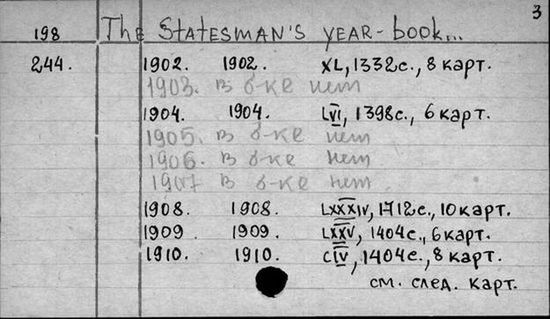 3
198 The Statesman's year-book...
244. 1902. 1902. XL, 1332с., 8 карт.
1903. в б-ке нет
1904. 1904. LVI, 1398с., 6 карт.
1905. в б-ке нет
1906. в б-ке нет
1907 в б-ке нет
1908. 1908. LXXXIV, 1712с., 10 карт.
1909 1909. LXXV, 1404с., 6 карт.
1910. 1910. CIV, 1404с., 8 карт.
см. след. карт.